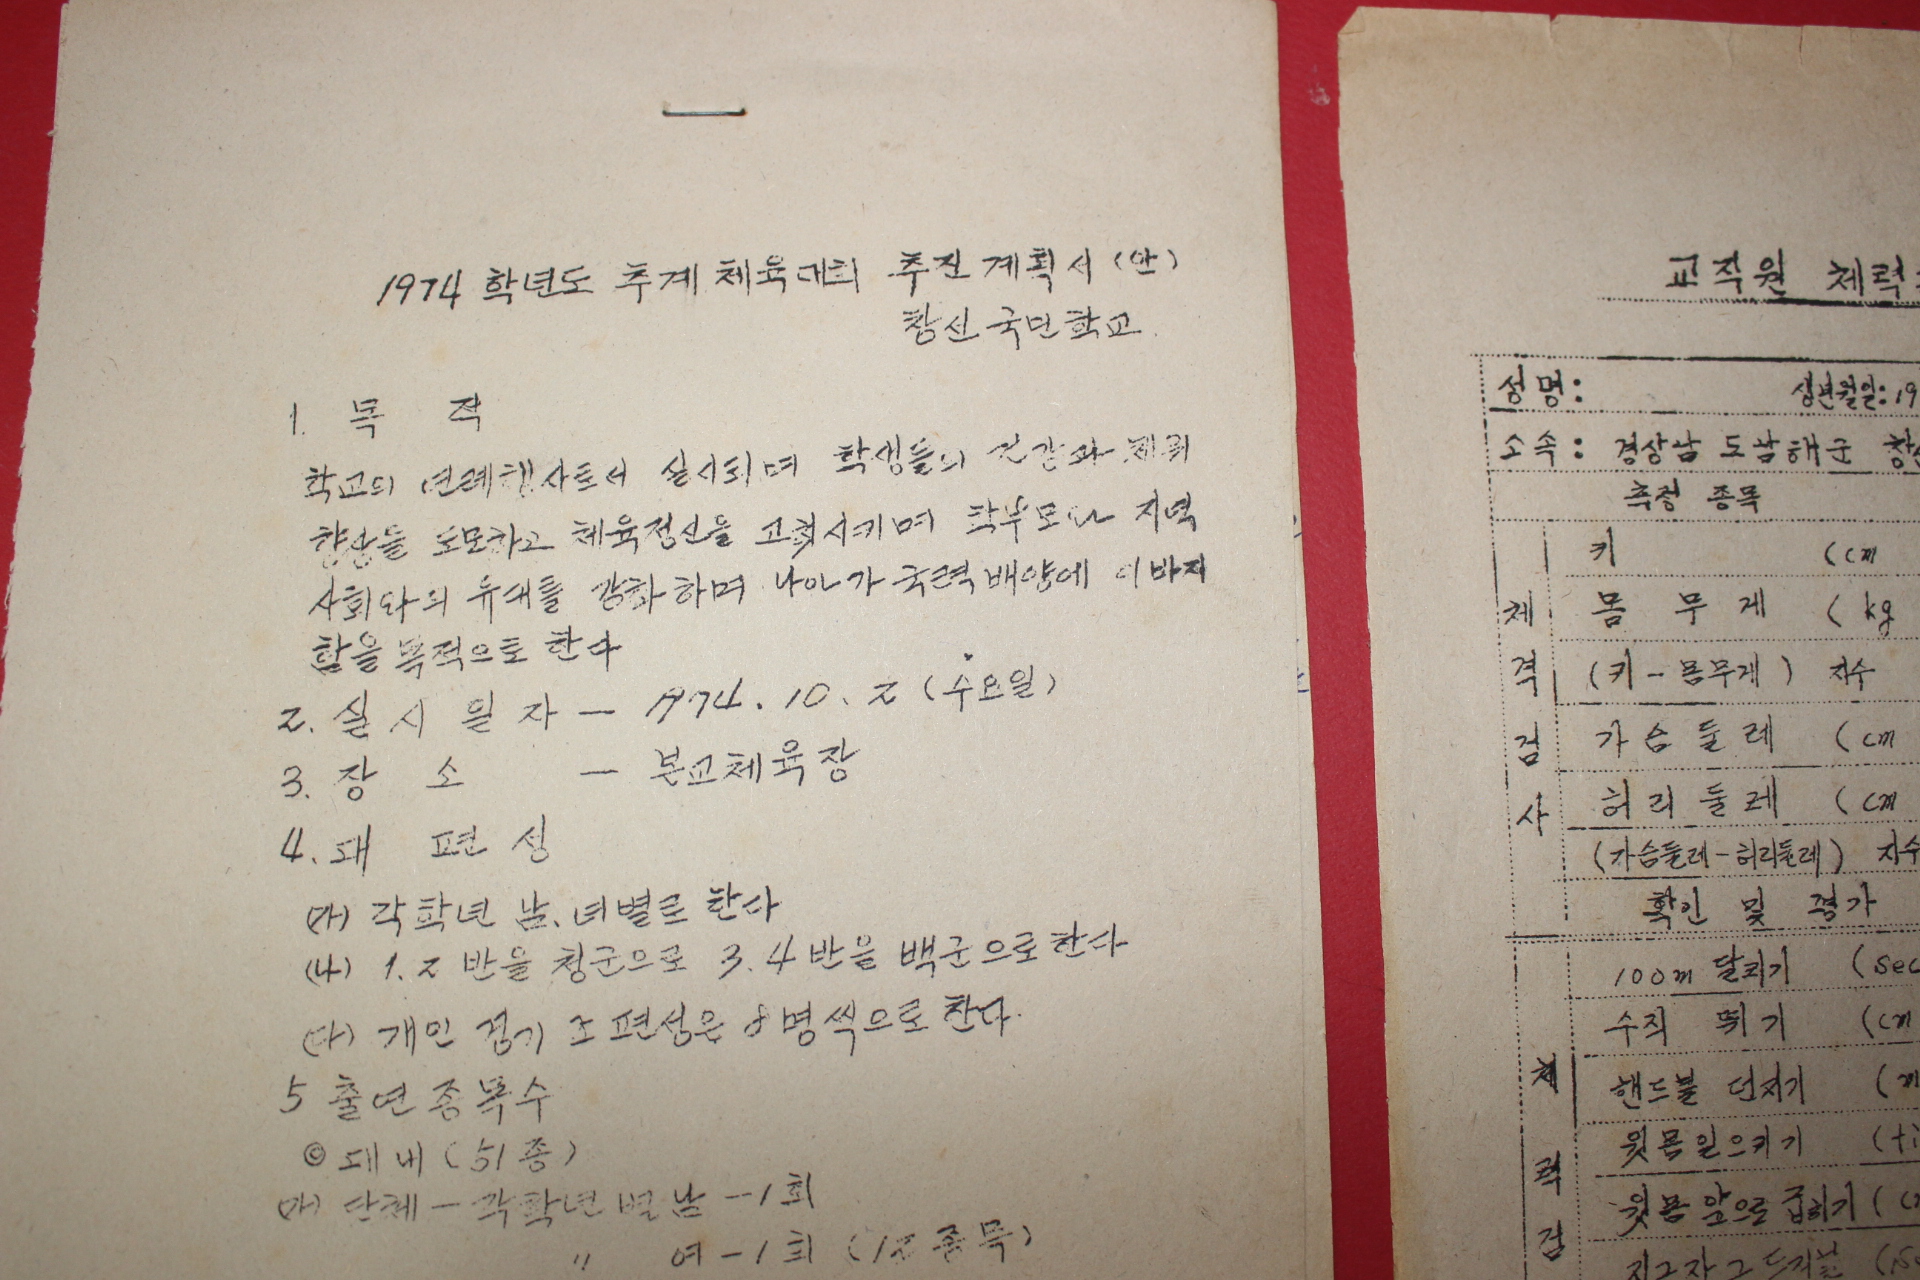 1974 학년도 추계 체육대회 추진계획서 (안)
창선국민학교
1. 목 적
학교의 연례행사로서 실시되며 학생들의 건강과 체위
향상을 도모하고 체육정신을 고취시키며 학부모나 지역
사회와의 유대를 강화하며 나아가 국력배양에 이바지
함을 목적으로 한다
2. 실시일자 — 1974. 10. 2 (수요일)
3. 장 소 — 본교체육장
4. 대 편 성
(가) 각학년 남.녀별로 한다
(나) 1.2 반을 청군으로 3.4 반을 백군으로한다
(다) 개인 경기 조편성은 8명씩으로 한다.
5 출연종목수
© 대내 (51종)
(가) 단체 — 각학년별 남 —1회
〃 여 —1회 (12종목)
교직원 체력
성명: 생년월일: 19
소속: 경상남도남해군 창
측정 종목
키 (cm
몸 무 게 ( kg
(키 - 몸무게) 지수
가 슴 둘 레 (cm
허 리 둘 레 (cm
(가슴둘레-허리둘레) 지수
확인 및 평가
체 격 검 사
100m 달리기 (sec
수직 뛰기 (cm
핸드볼 던지기 (m
윗몸일으키기 (ti
윗몸 앞으로 굽히기 (c
체 력 검